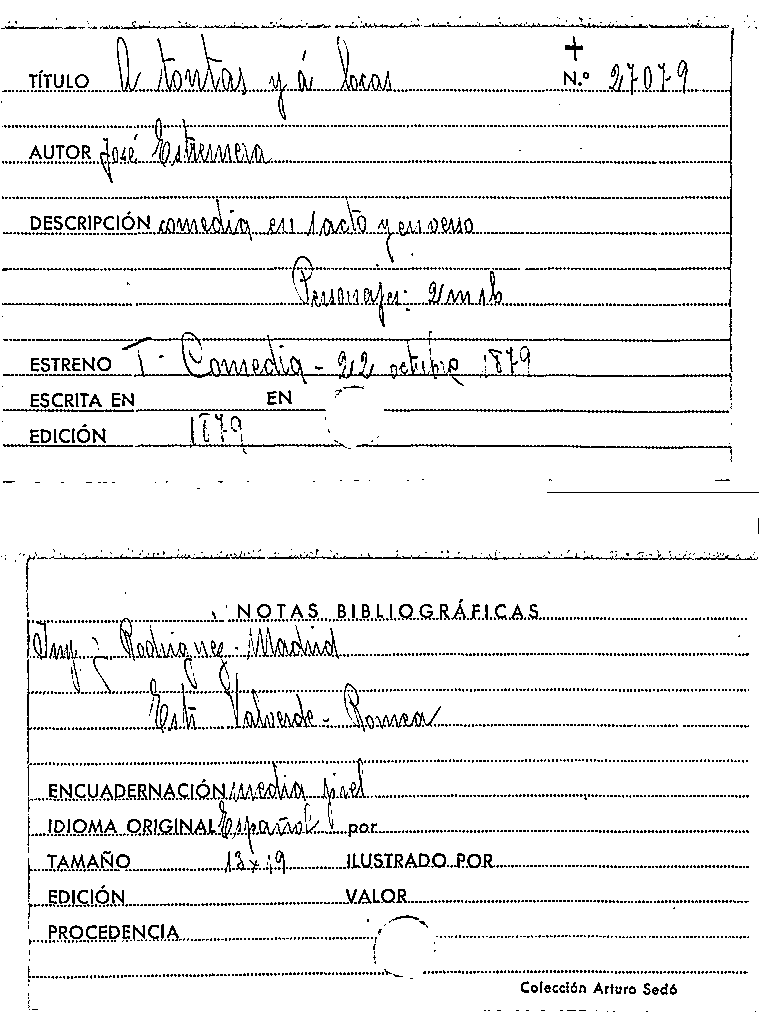 TÍTULO A tontas y á locas N.º 27079
AUTOR José Estremera
DESCRIPCIÓN comedia en 1 acto y en verso
Personajes: 2 m 1 b
ESTRENO T. Comedia - 22 octubre 1879
ESCRITA EN EN
EDICIÓN 1879
NOTAS BIBLIOGRÁFICAS
Rodriguez - Madrid
Valverde - Romea
ENCUADERNACIÓN media piel
IDIOMA ORIGINAL Español por
TAMAÑO 13 x 19 ILUSTRADO POR
EDICIÓN VALOR
PROCEDENCIA
Colección Arturo Sedó